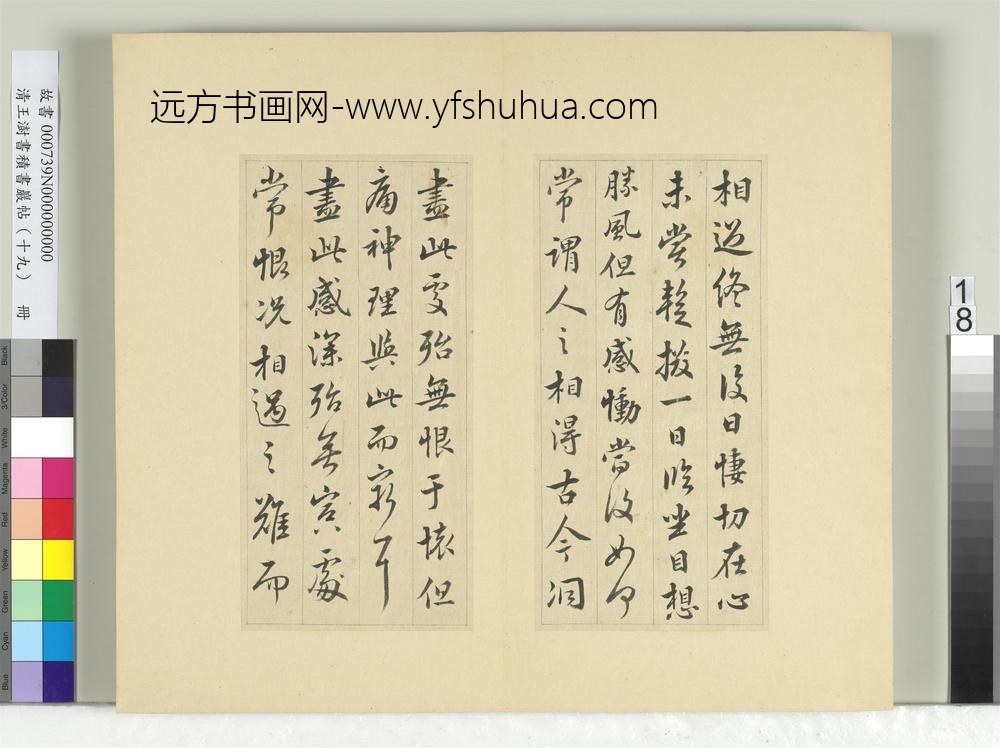 远方书画网-www.yfshuhua.com
故書 000739N000000000
清王澍書積書巖帖（十九） 冊
相過終無復日悽切在心
未嘗暫撥一日臨坐目想
勝風但有感慟當復如何
常謂人之相得古今洞
盡此處殆無恨于懷但
痛神理與此而窮耳
盡此感深殆無冥處
常恨况相遇之難而
1
8
Black
3/Color
White
Magenta
Red
Yellow
Green
Cyan
Blue